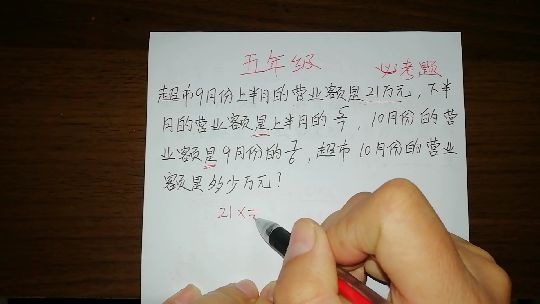 五年级 必考题
超市9月份上半月的营业额是21万元，下半
月的营业额是上半月的5/7，10月份的营
业额是9月份的7/6，超市10月份的营业
额是多少万元？
21×